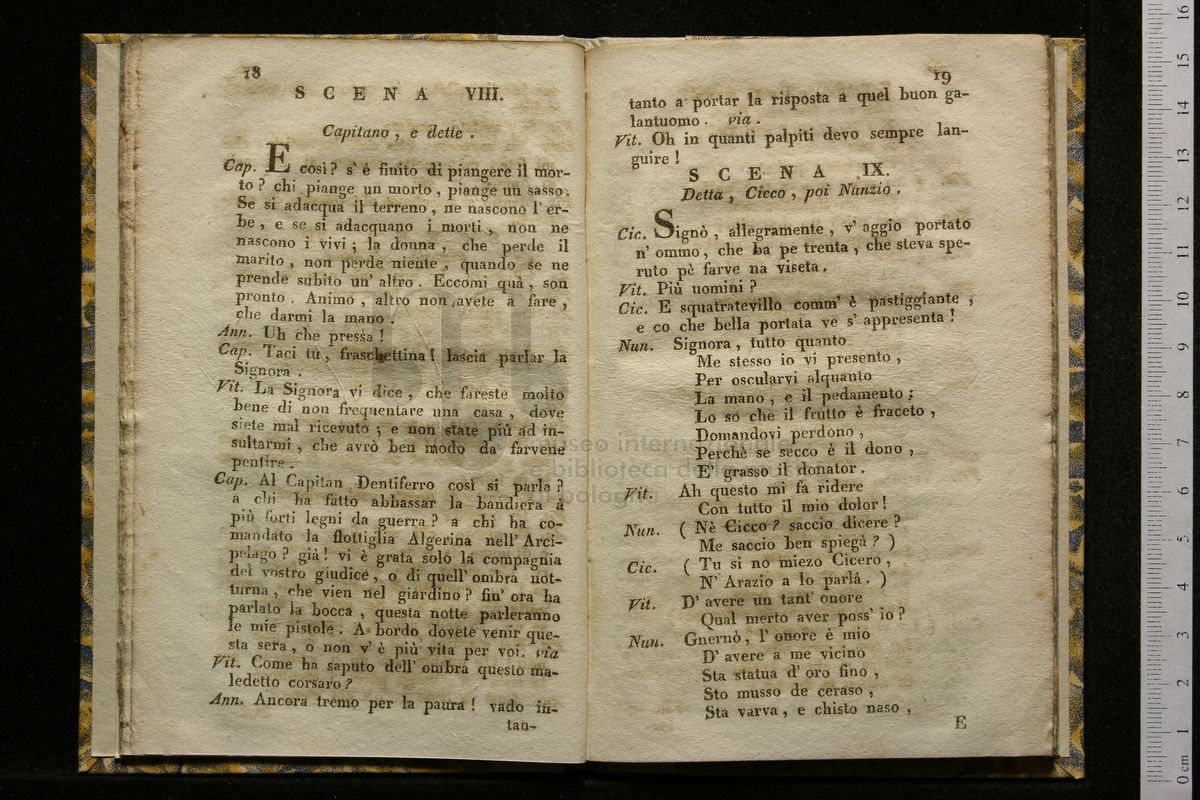 18
SCENA VIII.
Capitano, e dette.
Cap. E così? s' è finito di piangere il mor-
to? chi piange un morto, piange un sasso.
Se si adacqua il terreno, ne nascono l' er-
be, e se si adacquano i morti, non ne
nascono i vivi; la donna, che perde il
marito, non perde niente, quando se ne
prende subito un' altro. Eccomi quà, son
pronto. Animo, altro non avete a fare,
che darmi la mano.
Ann. Uh che pressa!
Cap. Taci tu, fraschettina! lascia parlar la
Signora.
Vit. La Signora vi dice, che fareste molto
bene di non frequentare una casa, dove
siete mal ricevuto; e non state più ad in-
sultarmi, che avrò ben modo da farvene
pentire.
Cap. Al Capitan Dentiferro così si parla?
a chi ha fatto abbassar la bandiera a
più forti legni da guerra? a chi ha co-
mandato la flottiglia Algerina nell' Arci-
pelago? già! vi è grata solo la compagnia
del vostro giudice, o di quell' ombra not-
turna, che vien nel giardino? fin' ora ha
parlato la bocca, questa notte parleranno
le mie pistole. A bordo dovete venir que-
sta sera, o non v' è più vita per voi. via
Vit. Come ha saputo dell' ombra questo ma-
ledetto corsaro?
Ann. Ancora tremo per la paura! vado in-
tan-
19
tanto a portar la risposta a quel buon ga-
lantuomo. via.
Vit. Oh in quanti palpiti devo sempre lan-
guire!
SCENA IX.
Detta, Cicco, poi Nunzio.
Cic. Signò, allegramente, v' aggio portato
n' ommo, che ba pe trenta, che steva spe-
ruto pè farve na viseta.
Vit. Più uomini?
Cic. E squatratevillo comm' è pastiggiante,
e co che bella portata ve s' appresenta!
Nun. Signora, tutto quanto
Me stesso io vi presento,
Per oscularvi alquanto
La mano, e il pedamento;
Lo so che il frutto è fraceto,
Domandovi perdono,
Perchè se secco è il dono,
E' grasso il donator.
Vit. Ah questo mi fa ridere
Con tutto il mio dolor!
Nun. (Nè Cicco? saccio dicere?
Me saccio ben spiegà?)
Cic. (Tu si no miezo Cicero,
N' Arazio a lo parlà.)
Vit. D' avere un tant' onore
Qual merto aver poss' io?
Nun. Gnernò, l' onore è mio
D' avere a me vicino
Sta statua d' oro fino,
Sto musso de ceraso,
Sta varva, e chisto naso,
E
museo internazionale
e biblioteca della musica
di bologna
0 cm 1 2 3 4 5 6 7 8 9 10 11 12 13 14 15 16